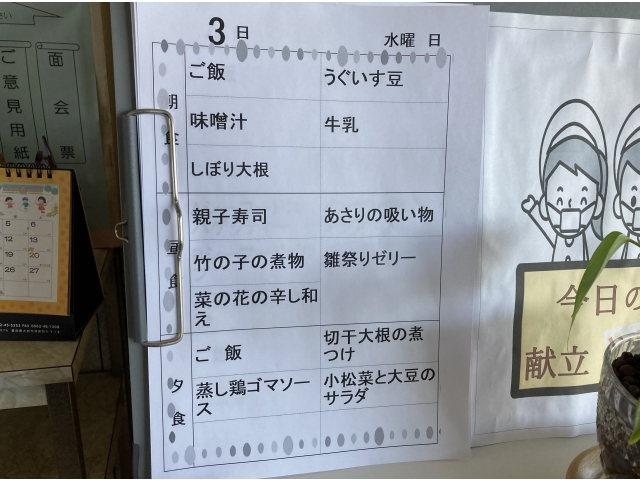 3日 水曜 日
朝食
ご飯 うぐいす豆
味噌汁 牛乳
しぼり大根
昼食
親子寿司 あさりの吸い物
竹の子の煮物 雛祭りゼリー
菜の花の辛し和
え
夕食
ご 飯 切干大根の煮
つけ
蒸し鶏ゴマソー
ス
小松菜と大豆の
サラダ
今日の
献立
面会票
ご意見用紙
さい
5 6
12 13
19 20
26 27